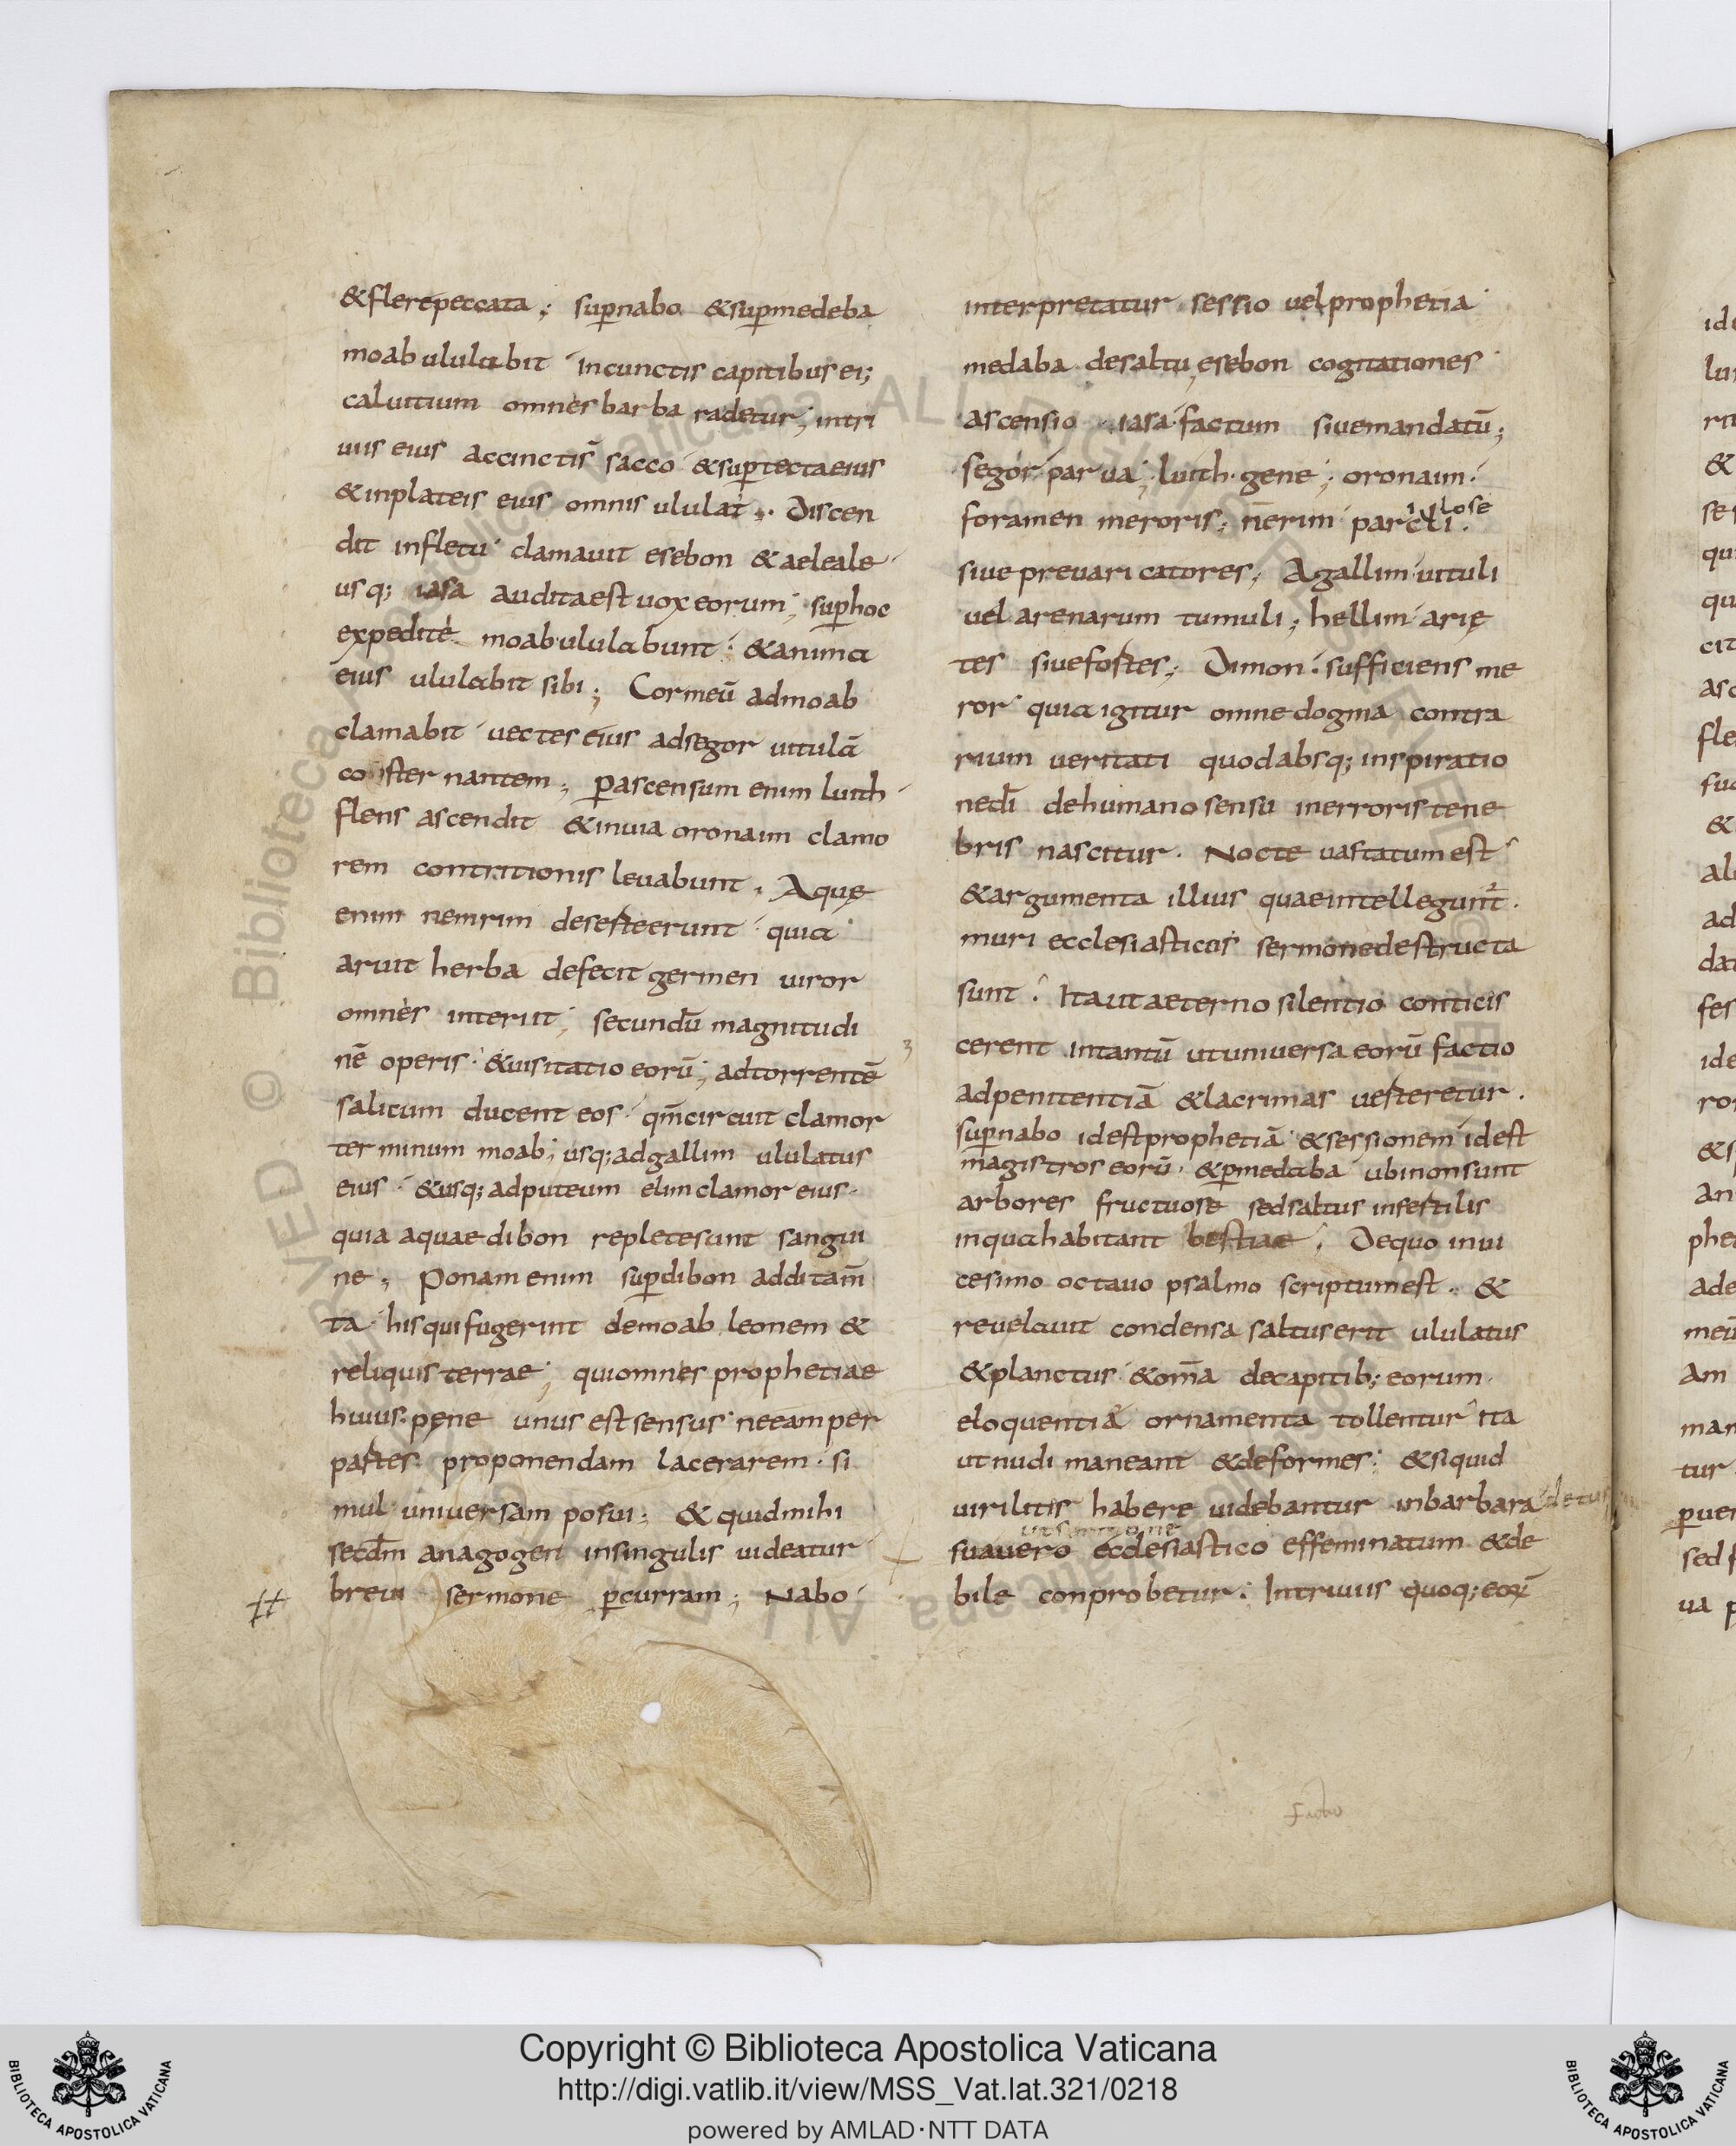 &flerepeccata; sup̄nabo &sup̄medeba
moab ululabit incunctis capitibus ei;
caluitium omnes barba radetur; intri
uiis eius accinctis̄ sacco &sup̄tectaeius
&inplateis eius omnis ululat;. Discen
dit infletu clamauit esebon &aeleale
usq; iasa auditaest uox eorum; sup̄hoc
expedite moabululabunt. &anima
eius ululabit sibi; Cormeū admoab
clamabit uectes eius adsegor uitulā
consternantem; p̄ascensum enim luith
flens ascendit &inuia oronaim clamo
rem contritionis leuabunt. Aquę
enim nemrim deserteerunt quia
aruit herba defecit germen uiror
omnes interiit; secundū magnitudi
nē operis. &uisitatio eorū; adtorrentē
salicum ducent eos qm̄circuit clamor
terminum moab; usq;adgallim ululatus
eius. &usq;adputeum elim clamor eius.
quia aquaedibon repletesunt sangui
ne; Ponam enim sup̄dibon additam̄
ta hisquifugerint demoab leonem &
reliquis terrae; quiomnes prophetiae
huius. pęne unus est sensus neeam per
partes proponendam lacerarem. si
mul uniuersam posui; & quidmihi
secdm̄ anagogen insingulis uideatur
breui sermone p̄curram; Nabo
interpretatur sessio uelprophetia
medaba desaltu; esebon cogitationes
ascensio iasa factum siuemandatū;
segor parua; luith gene; oronaim.
foramen meroris; nērim parcti.
siue preuaricatores; Agallim uituli
uel arenarum tumuli; hellim arię
tes siuefortes; Dimon. sufficiens me
ror quia igitur omne dogma contra
rium ueritati quodabsq; inspiratio
nedī dehumano sensu inerroris tene
bris nascitur. Nocte uastatum est
&argumenta illius quaeintellegunt̄.
muri ecclesiasticus sermonedestructa
sunt. Itaut aeterno silentio conticis
cerent Intantū utuniuersa eorū factio
adpenitentiā &lacrimas uerteretur.
sup̄nabo idest prophetiā &sessionem idest
magistros eorū. &p̄medaba ubinonsunt
arbores fructuose sedsaltus infertilis
inquahabitant bestiae. Dequo inui
cesimo octauo psalmo scriptumest. &
reuelauit condensa saltuserit ululatus
&planctus &om̄a decapitib; eorum.
eloquentiā ornamenta tollentur ita
utnudi maneant &deformes. &siquid
uirilitis habere uidebantur inbarbara
suauero ecclesiastico effeminatum &de
bile conprobetur. Intriuiis quoq; eorū
Copyright © Biblioteca Apostolica Vaticana
http://digi.vatlib.it/view/MSS_Vat.lat.321/0218
powered by AMLAD·NTT DATA
BIBLIOTECA APOSTOLICA VATICANA
BIBLIOTECA APOSTOLICA VATICANA